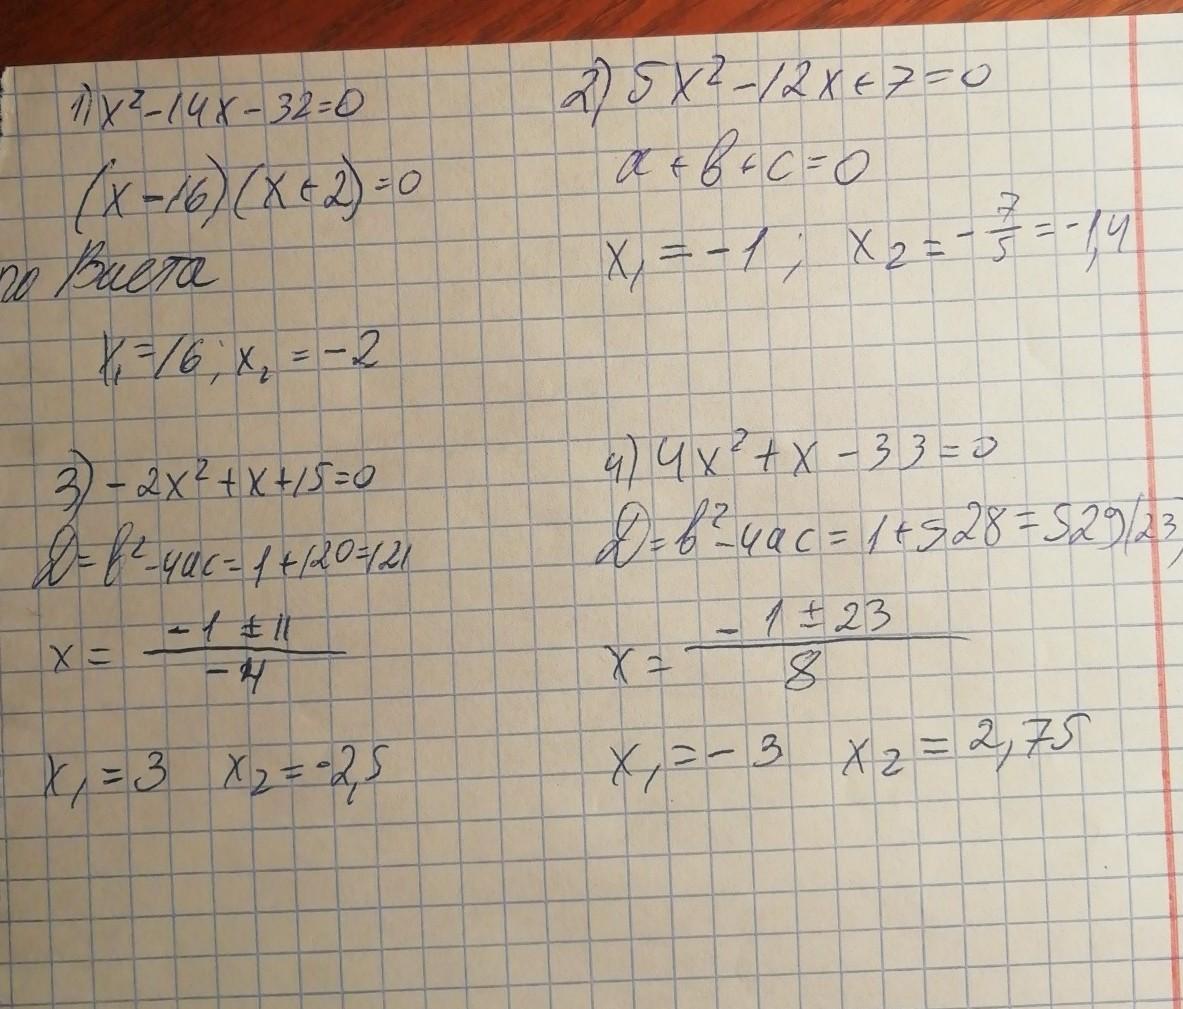 1) x²-14x-32=0
(x-16)(x+2)=0
по Виета
x₁=16; x₂=-2
2) 5x²-12x+7=0
a+b+c=0
x₁=-1; x₂=-7/5=-1,4
3) -2x²+x+15=0
D=b²-4ac=1+120=121
x= (-1±11)/(-4)
x₁=3 x₂=-2,5
4) 4x²+x-33=0
D=b²-4ac=1+528=529(23)
x= (-1±23)/8
x₁=-3 x₂=2,75